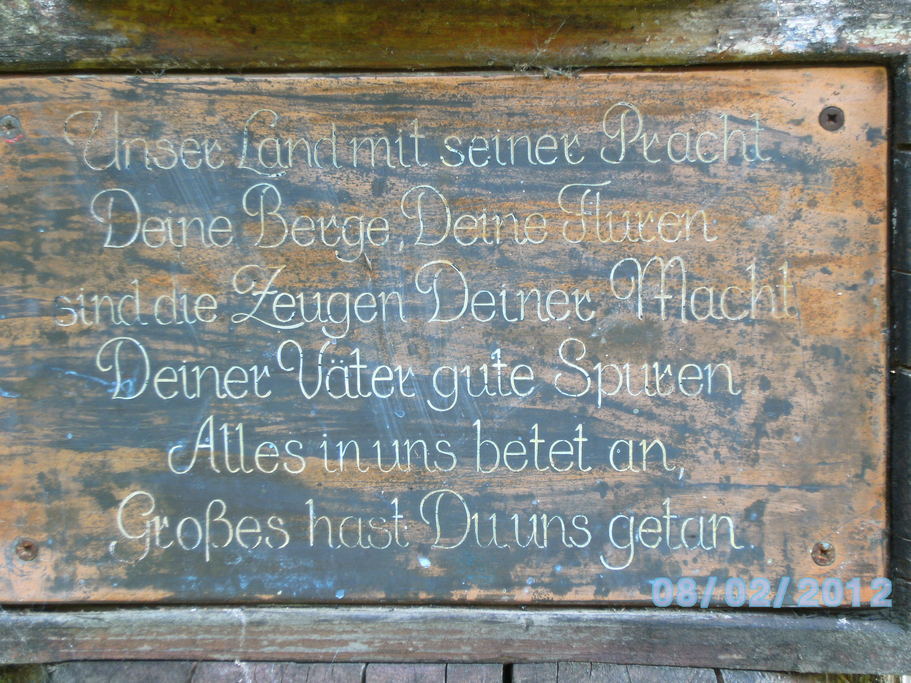 Unser Land mit seiner Pracht
Deine Berge, Deine Fluren
sind die Zeugen Deiner Macht
Deiner Väter gute Spuren
Alles in uns betet an,
Großes hast Du uns getan.
08/02/2012